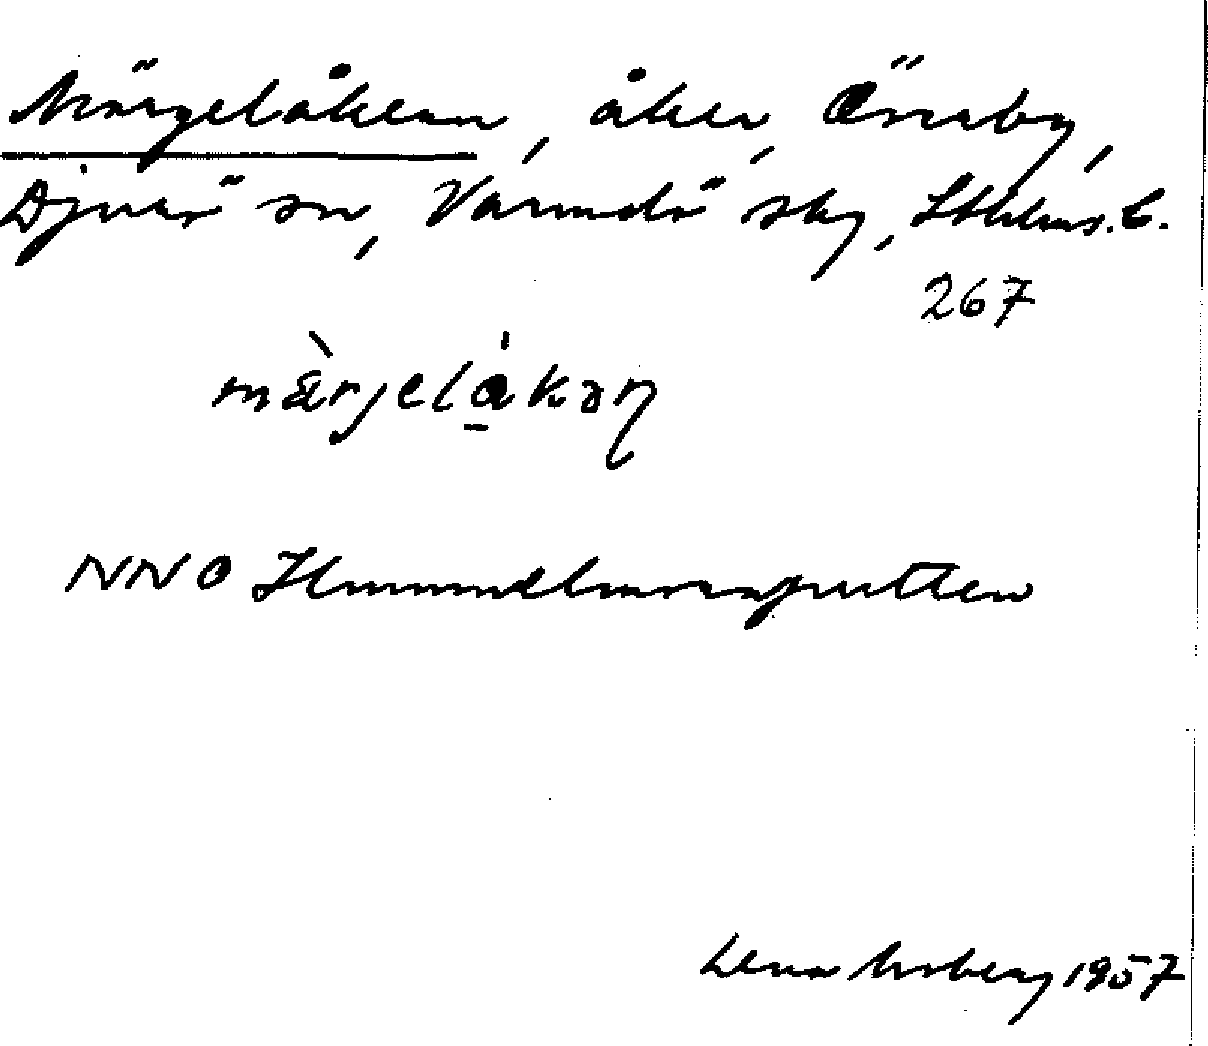 Märgelåkern, åker, Överby,
Djurö sn, Värmdö skg, Sthlms. l.
267
mä̀rjelå̀kəṇ
NNO Hummelmoraputten
Lena Moberg 1957